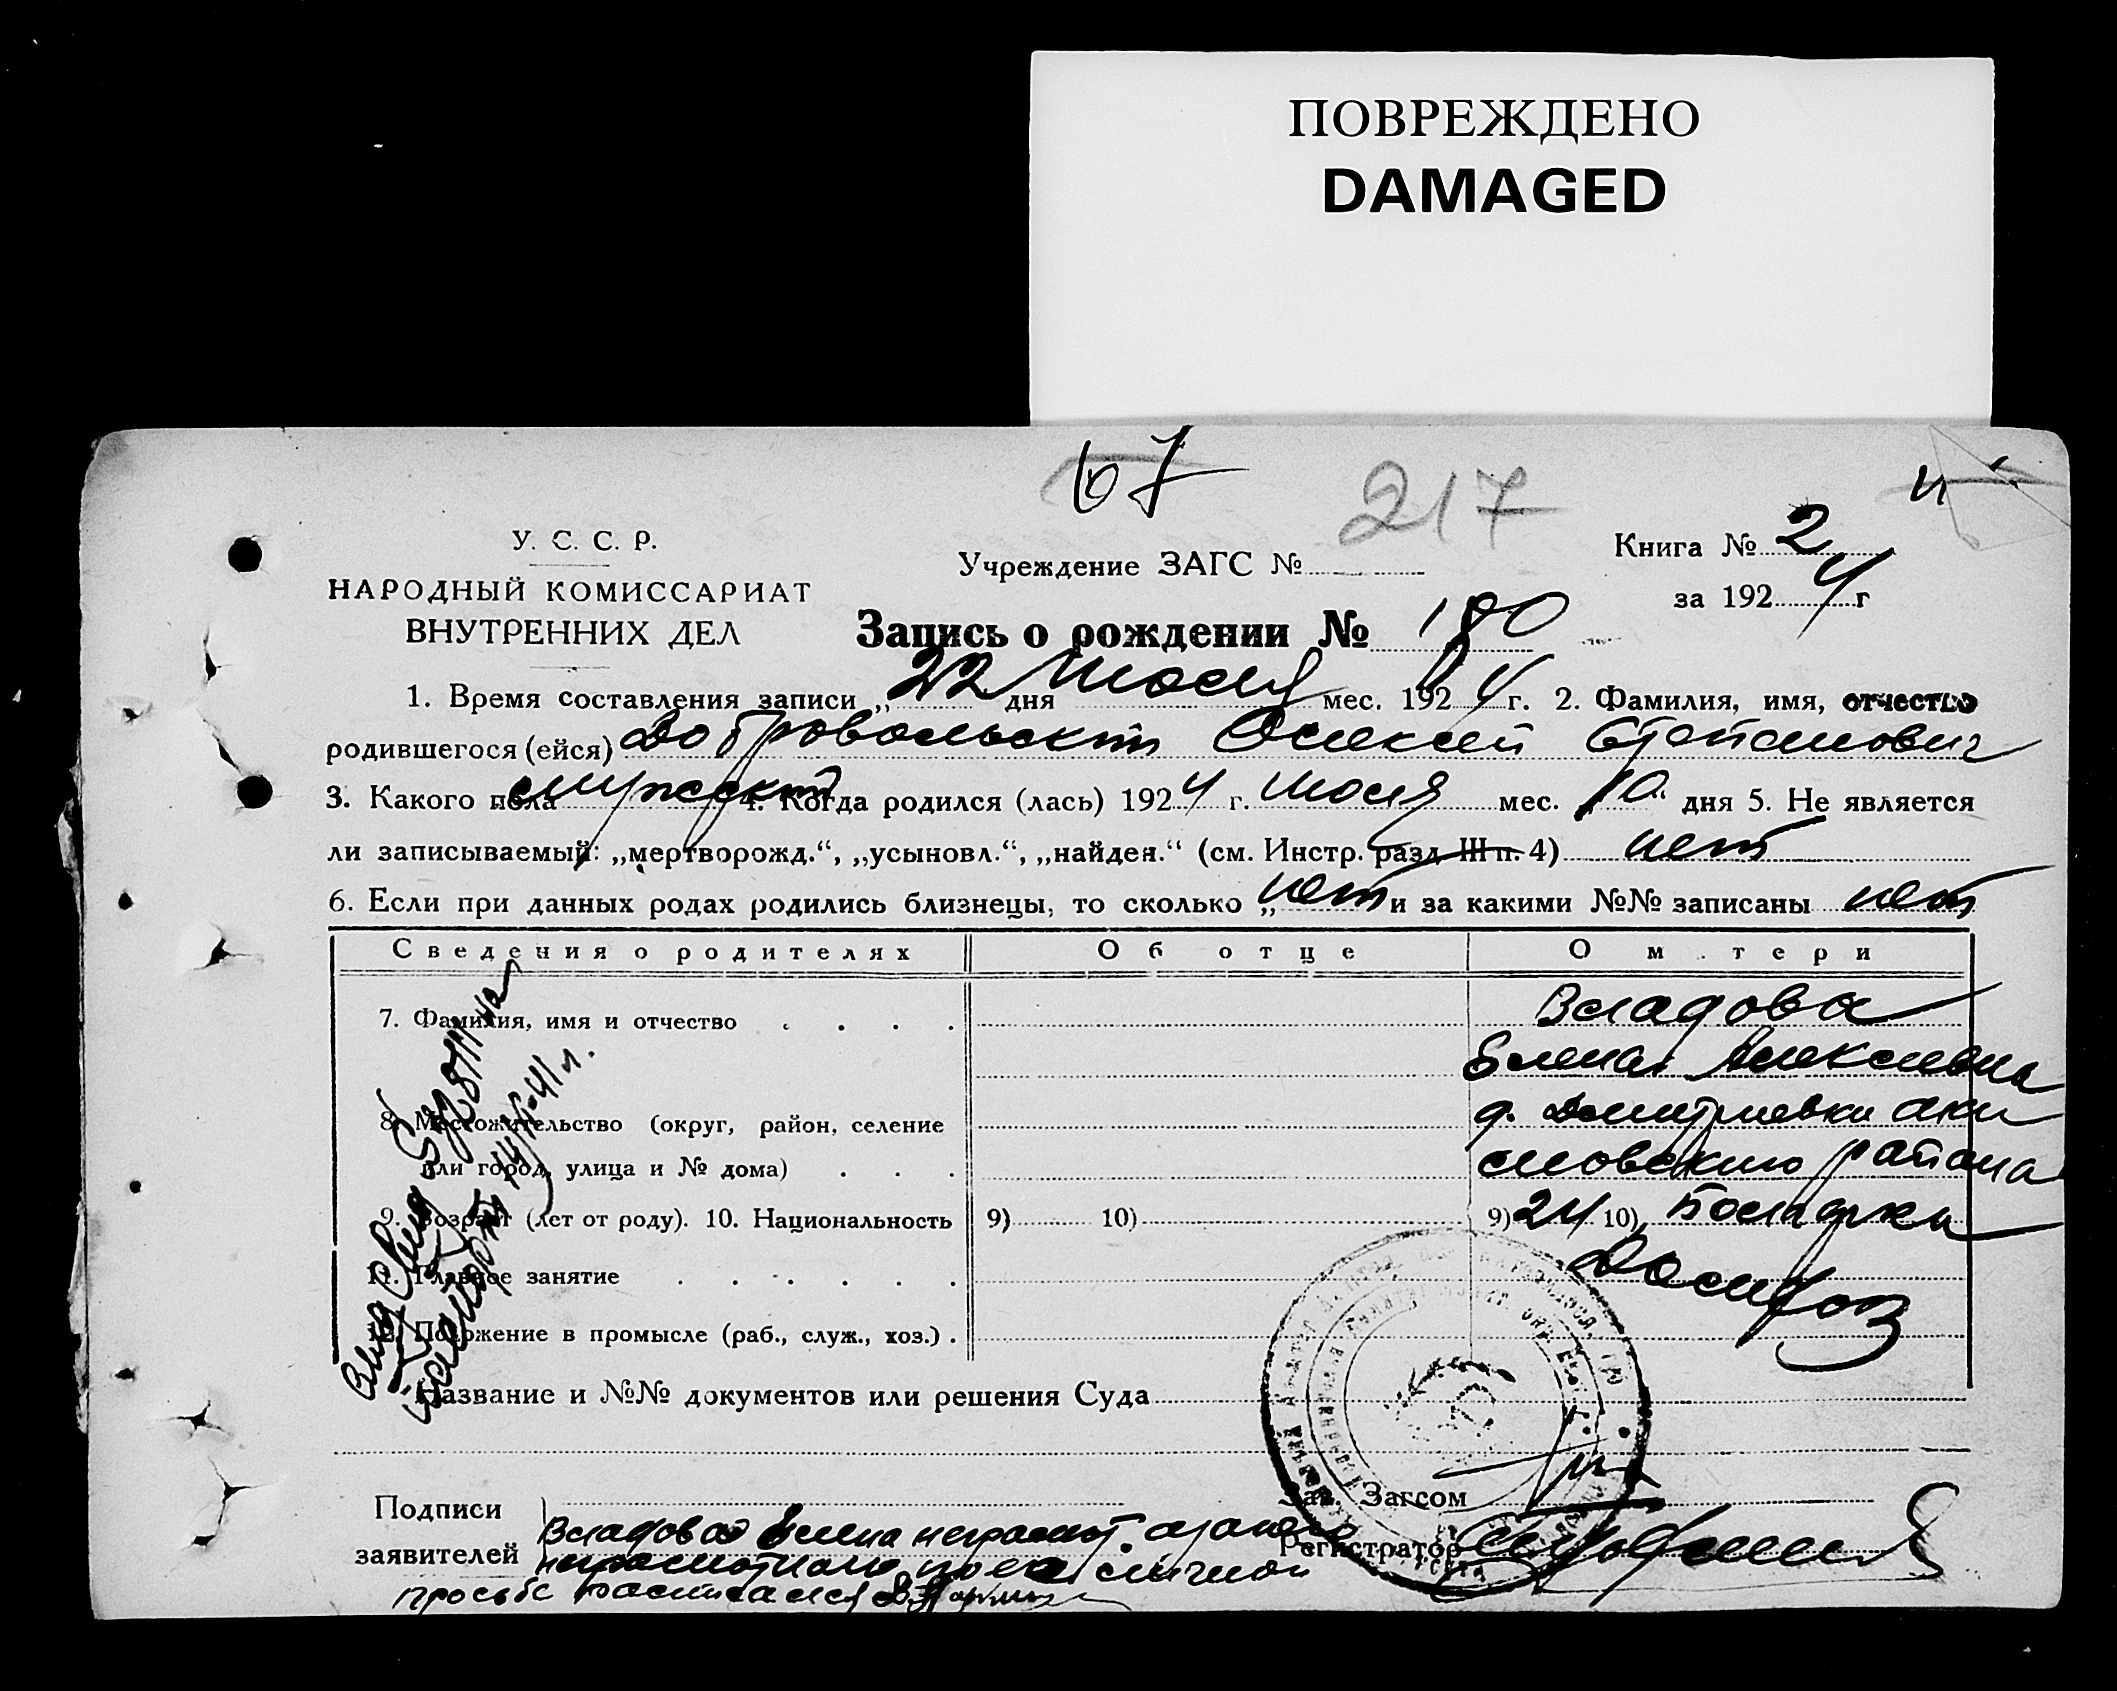 ПОВРЕЖДЕНО
DAMAGED
67
217
У. С. С. Р.
НАРОДНЫЙ КОМИССАРИАТ
ВНУТРЕННИХ ДЕЛ
Учреждение ЗАГС №
Книга № 2
за 1924 г
Запись о рождении № 180
1. Время составления записи „22 дня Июля мес. 1924 г. 2. Фамилия, имя, отчество
родившегося (ейся) Добровольский Алексей Степанович
3. Какого пола мужской 4. Когда родился (лась) 1924 г. Июля мес. 10 “ дня 5. Не является
ли записываемый: „мертворожд.“, „усыновл.“, „найден.“ (см. Инстр. разд. III п. 4) нет
6. Если при данных родах родились близнецы, то сколько „нет и за какими №№ записаны нет
Сведения о родителях Об отце О м тери
7. Фамилия, имя и отчество Владова
Елена Алексеевна
8. Местожительство (округ, район, селение д. Дмитриевка Аки
или город, улица и № дома) мовского района
9. Возраст (лет от роду). 10. Национальность 9) 10) 9) 24 10) Болгарка
11. Главное занятие Домохоз
12. Положение в промысле (раб., служ., хоз.)
Название и №№ документов или решения Суда
Подписи
заявителей Владова Елена неграмот. а за нее
неграмотною по ее личной
просьбе расписался
Зав. Загсом
Регистратор